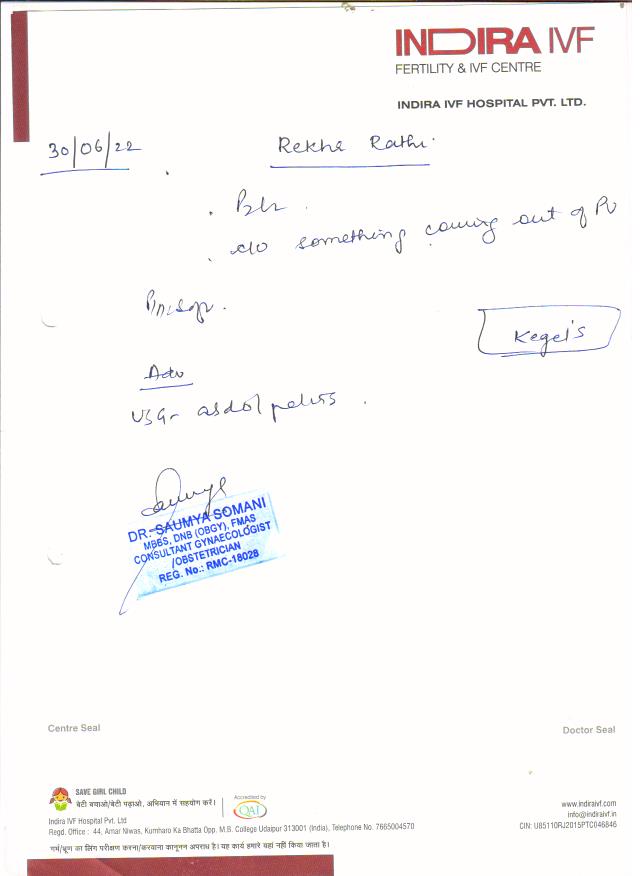 INDIRA IVF
FERTILITY & IVF CENTRE
INDIRA IVF HOSPITAL PVT. LTD.
30/06/22
Rekha Rathi.
c/o something coming out of PV
Kegel's
Adv
USG- abdo/pelvis.
DR. SAUMYA SOMANI
MBBS, DNB (OBGY), FMAS
CONSULTANT GYNAECOLOGIST
/OBSTETRICIAN
REG. No.: RMC-18028
Centre Seal
Doctor Seal
SAVE GIRL CHILD
बेटी बचाओ/बेटी पढ़ाओ, अभियान में सहयोग करें।
Accredited by
QAI
Indira IVF Hospital Pvt. Ltd
Regd. Office : 44, Amar Niwas, Kumharo Ka Bhatta Opp. M.B. College Udaipur 313001 (India), Telephone No. 7665004570
www.indiraivf.com
info@indiraivf.in
CIN: U85110RJ2015PTC046846
गर्भ/भ्रूण का लिंग परीक्षण करना/करवाना कानूनन अपराध है। यह कार्य हमारे यहां नहीं किया जाता है।